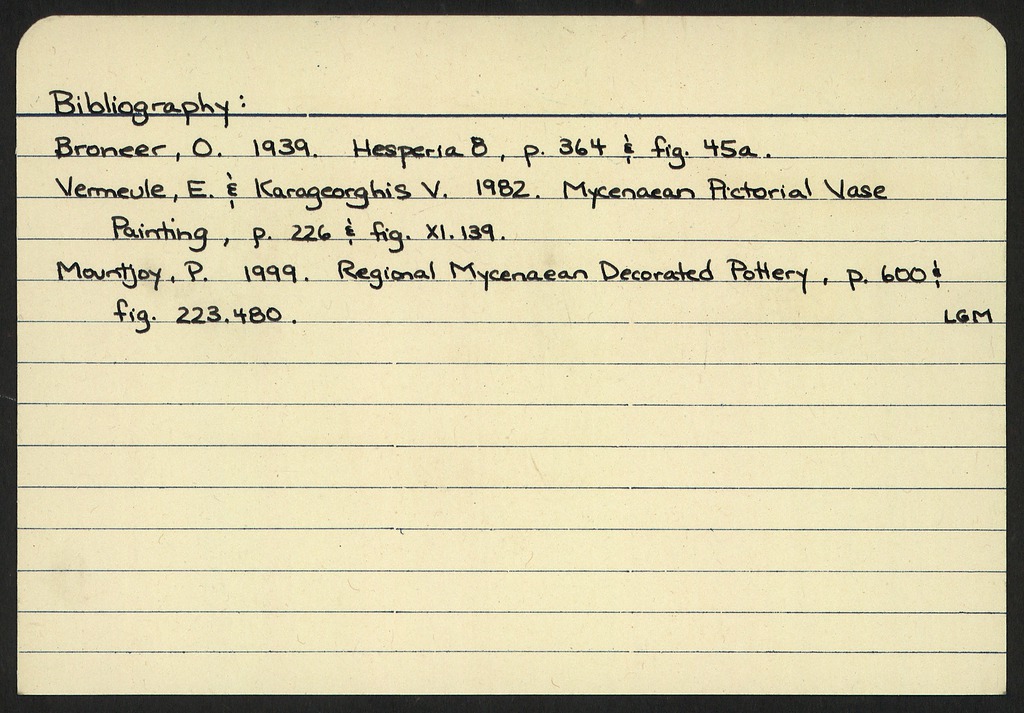 Bibliography:
Broneer, O. 1939. Hesperia 8, p. 364 & fig. 45a.
Vermeule, E. & Karageorghis V. 1982. Mycenaean Pictorial Vase
Painting, p. 226 & fig. XI.139.
Mountjoy, P. 1999. Regional Mycenaean Decorated Pottery, p. 600 &
fig. 223.480. LGM